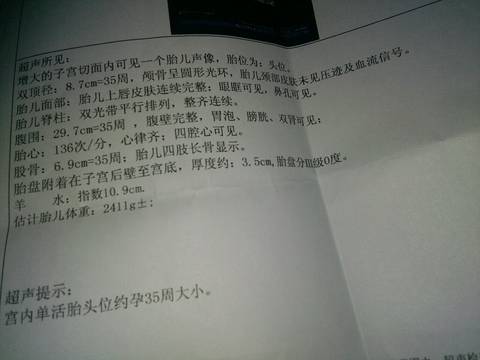 超声所见：
增大的子宫切面内可见一个胎儿声像，胎位为：头位。
双顶径：8.7cm=35周，颅骨呈圆形光环，胎儿颈部皮肤未见压迹及血流信号。
胎儿面部：胎儿上唇皮肤连续完整；眼眶可见，鼻孔可见。
胎儿脊柱：双光带平行排列，整齐连续。
腹围：29.7cm=35周，腹壁完整，胃泡、膀胱、双肾可见；
胎心：136次/分，心律齐；四腔心可见。
股骨：6.9cm=35周；胎儿四肢长骨显示。
胎盘附着在子宫后壁至宫底，厚度约：3.5cm,胎盘分Ⅲ级0度。
羊　　水：指数10.9cm.
估计胎儿体重：2411g±；
超声提示：
宫内单活胎头位约孕35周大小。